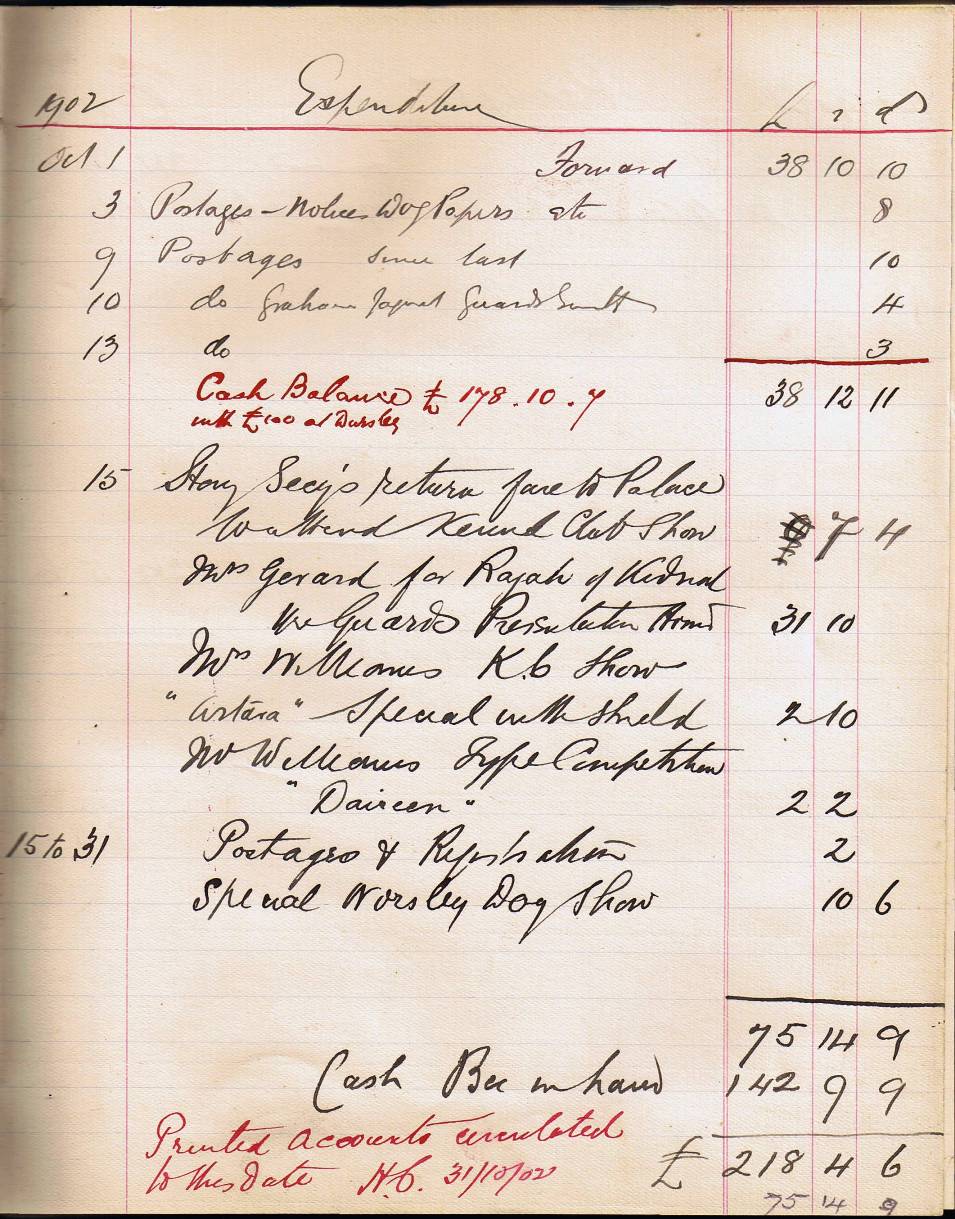 1902 Expenditure £ s d
Oct 1 Forward 38 10 10
3 Postages - Notices Dog Papers etc 8
9 Postages since last 10
10 do Graham Jaquet Guards Smith 4
13 do 3
Cash Balance £ 178.10.7 38 12 11
with £100 at Dursley
15 Hony Secy's return fare to Palace
to attend Kennel Club Show 7 4
Mrs Gerard for Rajah of Kidnal
the Guards Presentation 31 10
Mrs Williams K.C Show
"Astara" Special with shield 2 10
Mr Williams Type Competition
"Daireen" 2 2
15 to 31 Postages & Registration 2
Special Worsley Dog Show 10 6
75 14 9
Cash Bce in hand 142 9 9
Printed accounts circulated
to this Date H.C. 31/10/02 £ 218 4 6
75 14 9